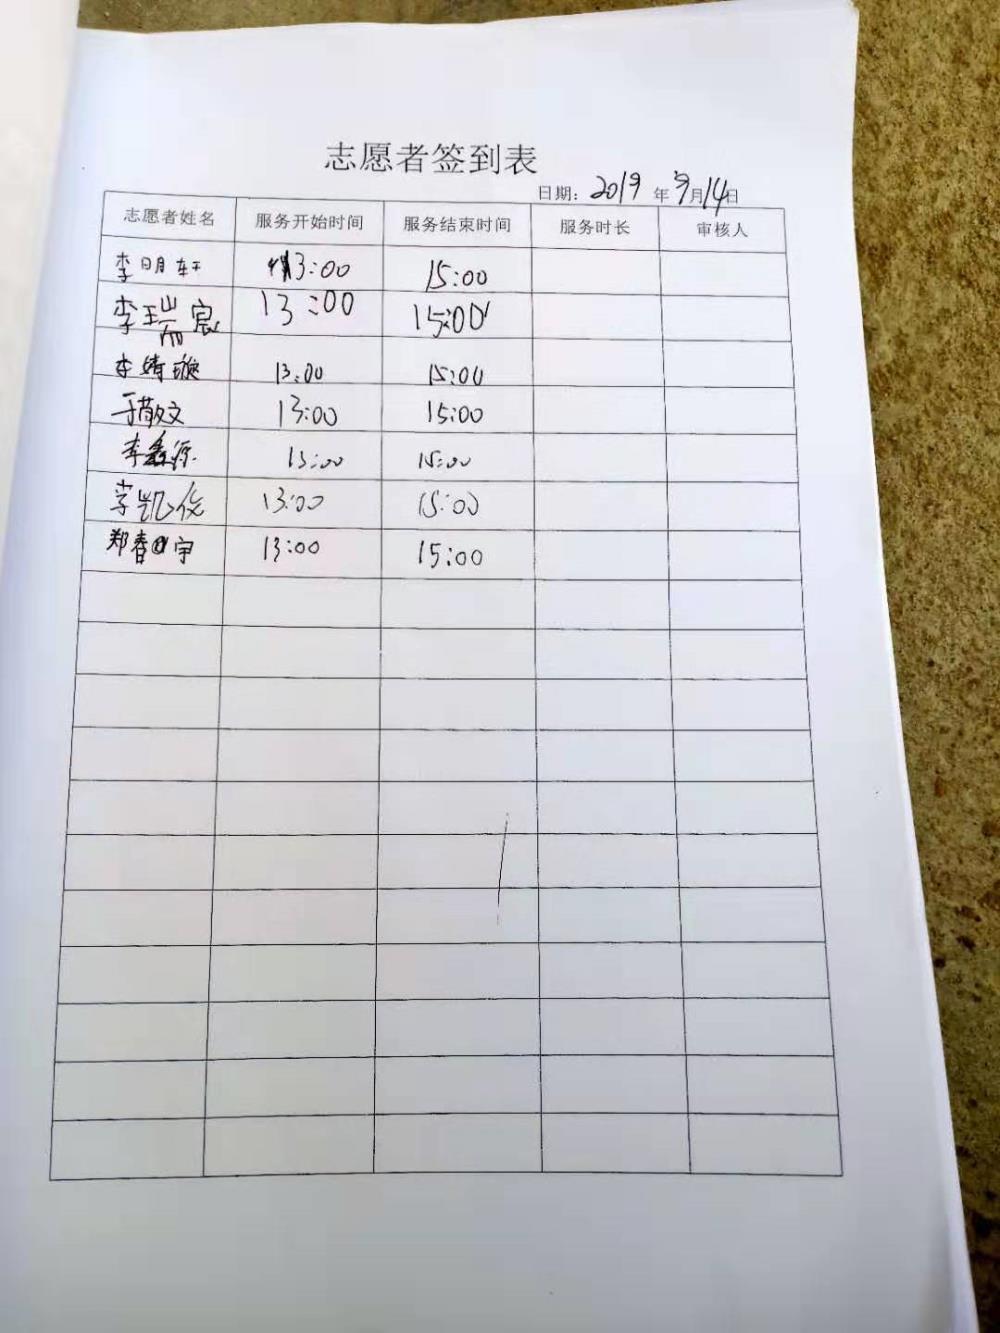 志愿者签到表
日期：2019年9月14日
志愿者姓名 服务开始时间 服务结束时间 服务时长 审核人
李明轩 13:00 15:00
李瑞宸 13:00 15:00
李婧璇 13:00 15:00
于敬文 13:00 15:00
李鑫源 13:00 15:00
李凯俊 13:00 15:00
郑春宇 13:00 15:00